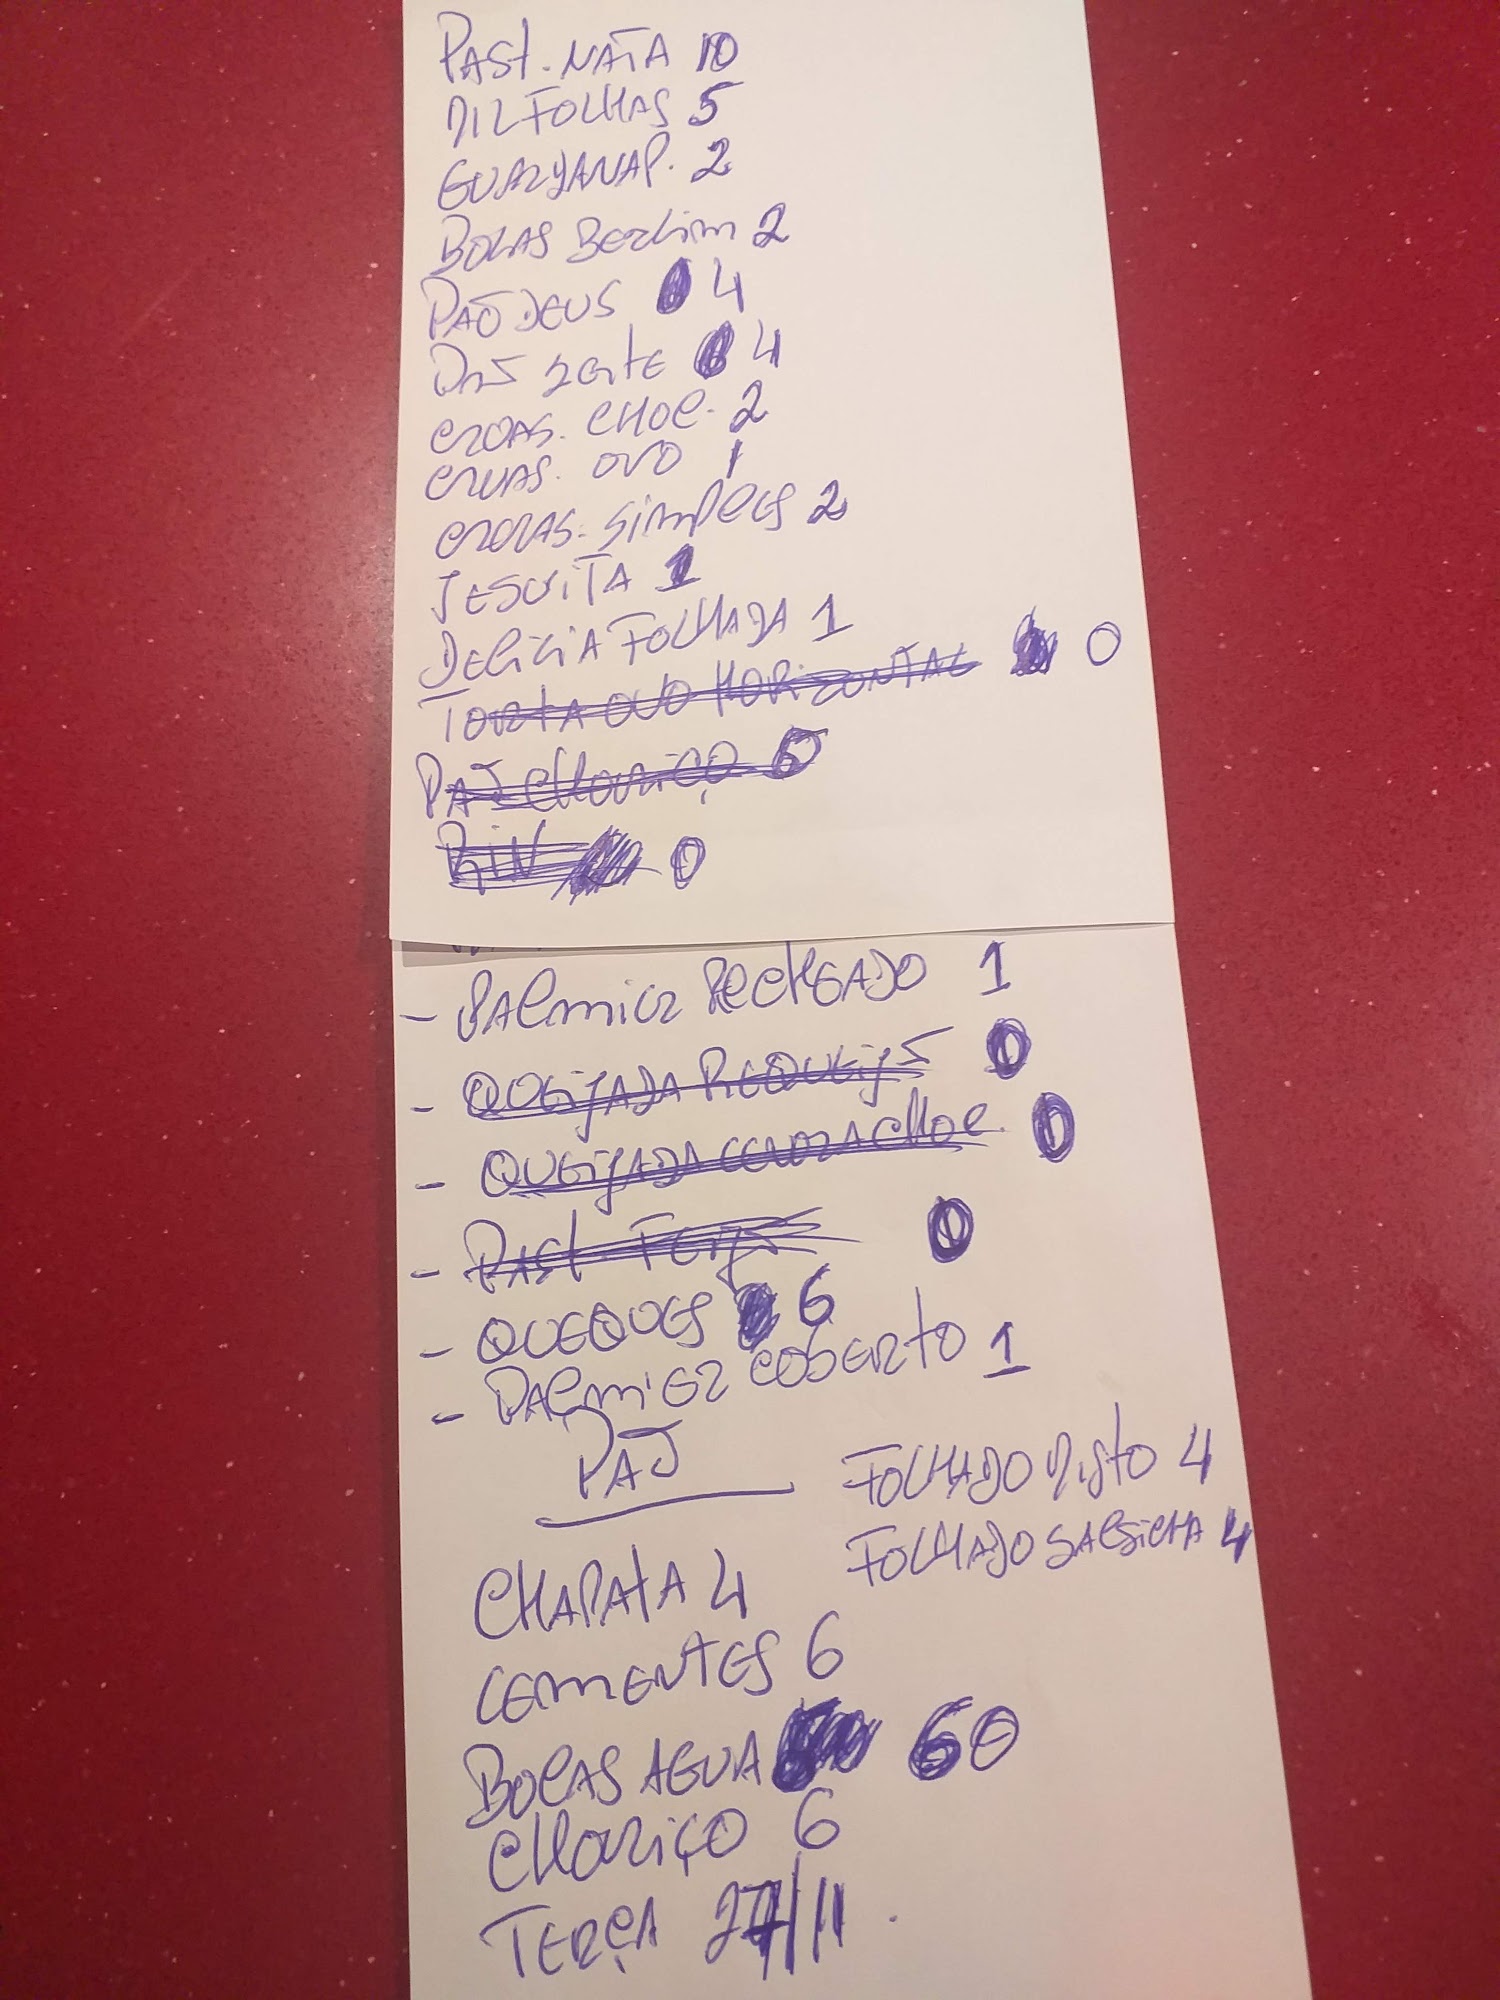 PAST. NATA 10
MILFOLHAS 5
GUARDANAP. 2
BOLAS Berlim 2
PAÕ DEUS 4
PÃO LEITE 4
CROAS. CHOC. 2
CROAS. OVO 1
CROAS. SIMPLES 2
JESUITA 1
DELICIA FOLHADA 1
TORTA OVO HORIZONTAL 0
PÃO CHOURIÇO 6
0
- PALMIER RECHEADO 1
- QUEIJADA REQUEIJÃO 0
- QUEIJADA CENOURA CHOC. 0
- PAST. FEIJÃO 0
- QUEQUES 6
- PALMIER COBERTO 1
PÃO
FOLHADO MISTO 4
FOLHADO SALSICHA 4
CHAPATA 4
CEMENTES 6
BOLAS AGUA 60
CHORIÇO 6
TERÇA 27/11.